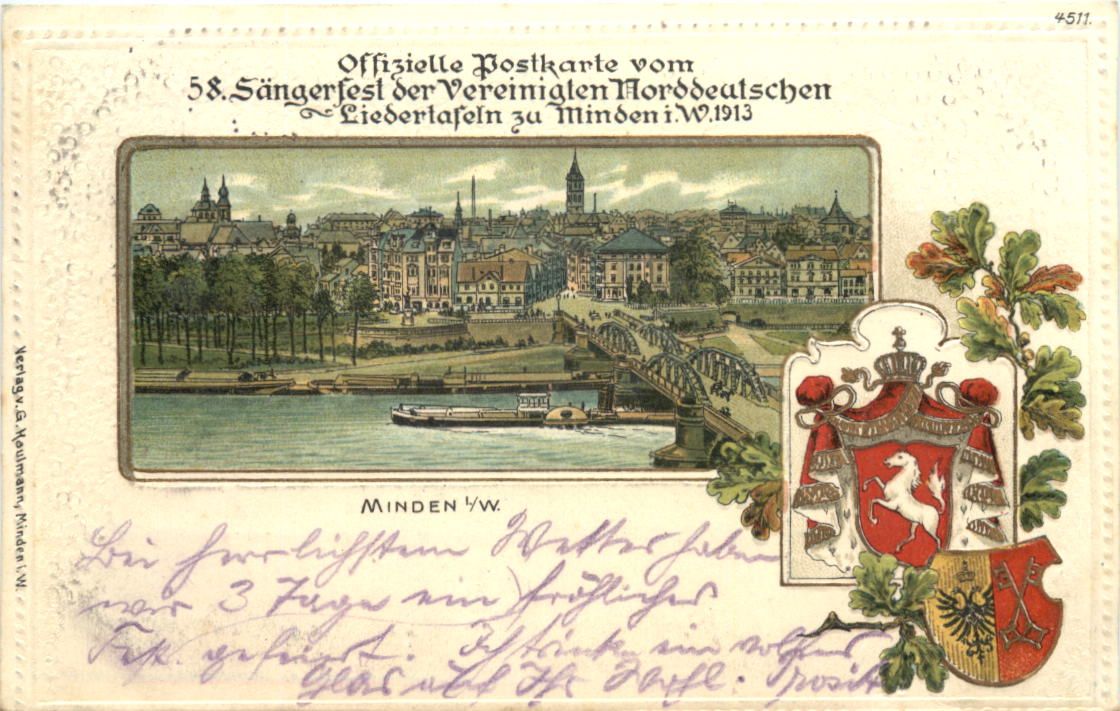 4511.
Offizielle Postkarte vom
58. Sängerfest der Vereinigten Norddeutschen
Liedertafeln zu Minden i. W. 1913
MINDEN i/W.
Verlag v. G. Moulmann, Minden i. W.
Bei herrlichstem Wetter haben
wir 3 Tage ein fröhliches
Fest gefeiert. Ich trinke ein volles
Glas auf Ihr Wohl. Prosit